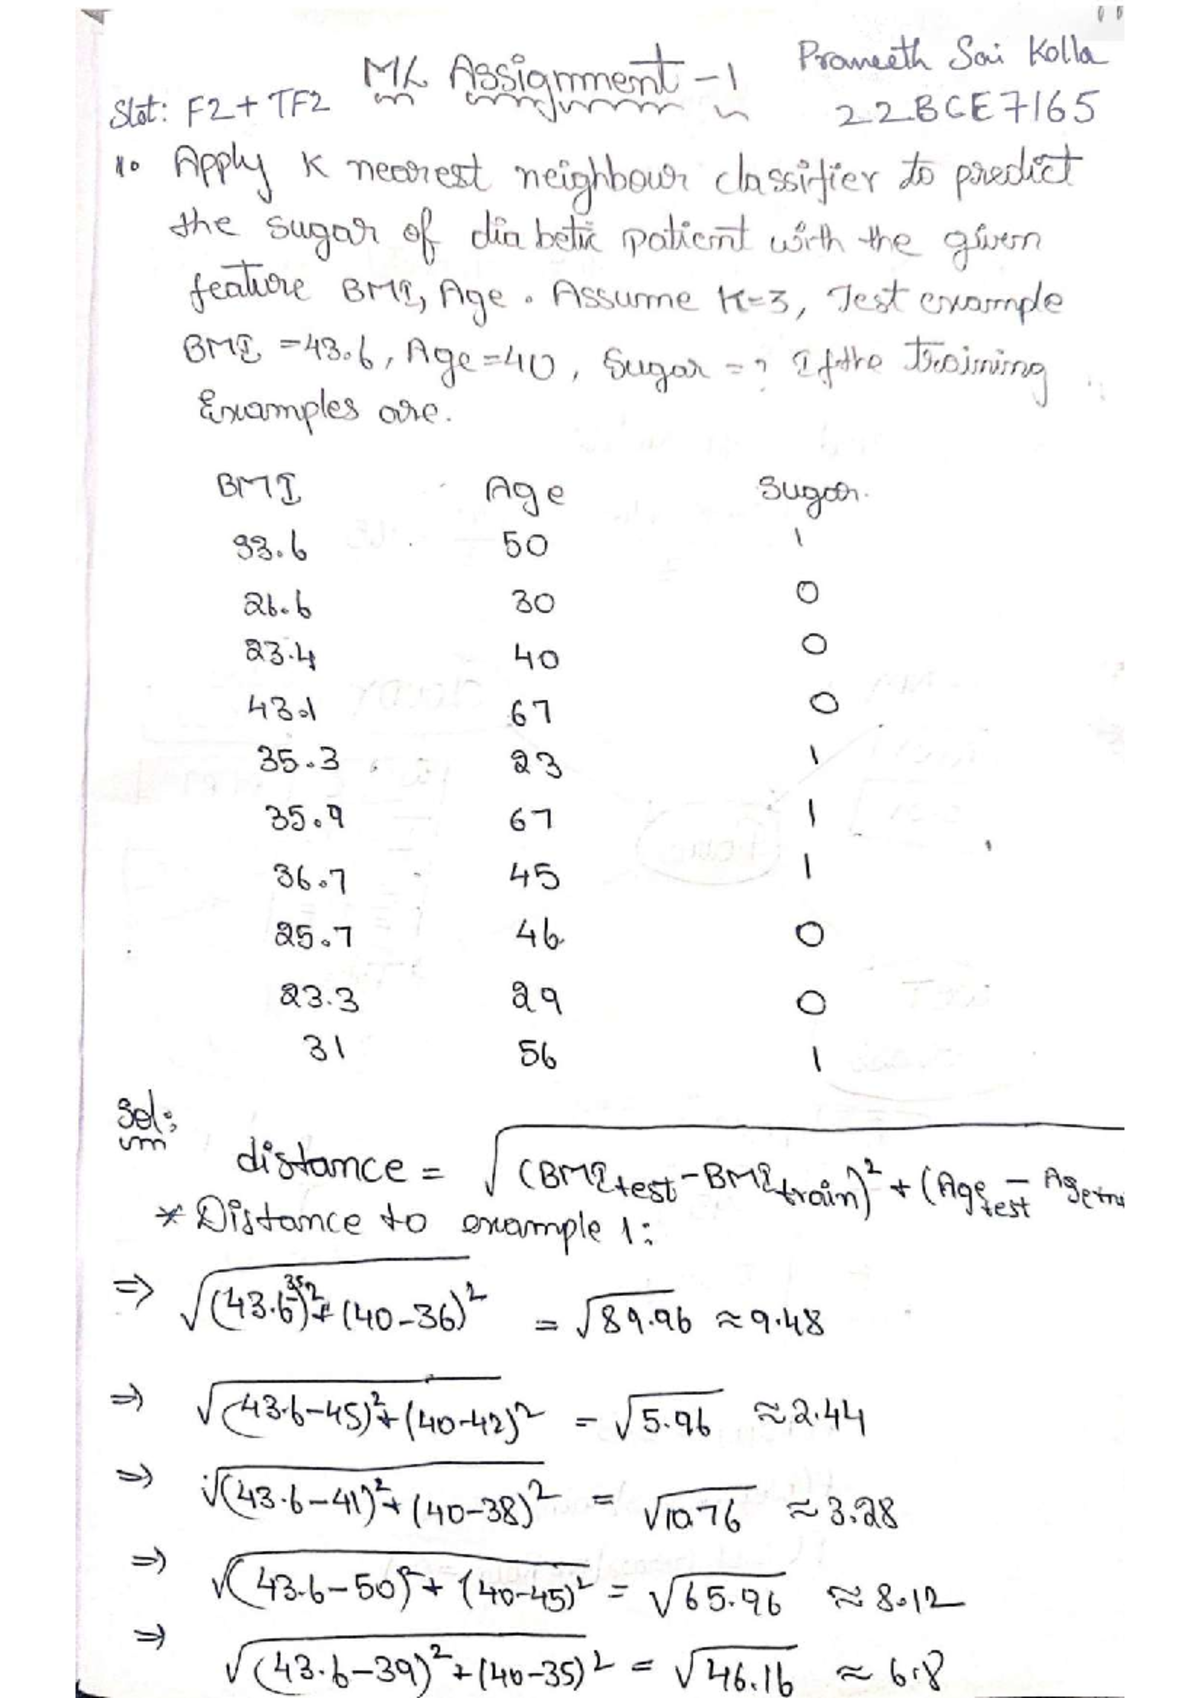 ML Assignment -1
Praneeth Sai Kolla
Slot: F2+TF2
22BCE7165
1. Apply K nearest neighbour classifier to predict
the sugar of diabetic patient with the given
feature BMI, Age. Assume K=3, Test example
BMI =43.6, Age=40, Sugar =? If the training
Examples are.
BMI Age Sugar.
33.6 50 1
26.6 30 0
23.4 40 0
43.1 67 0
35.3 23 1
35.9 67 1
36.7 45 1
25.7 46 0
23.3 29 0
31 56 1
Sol:
distance = √(BMI test - BMI train)² + (Age test - Age tra
* Distance to example 1:
⇒ √(43.6-35)²+(40-36)² = √89.96 ≈9.48
⇒ √(43.6-45)²+(40-42)² = √5.96 ≈2.44
⇒ √(43.6-41)²+(40-38)² = √10.76 ≈3.28
⇒ √(43.6-50)²+(40-45)² = √65.96 ≈8.12
⇒ √(43.6-39)²+(40-35)² = √46.16 ≈ 6.8